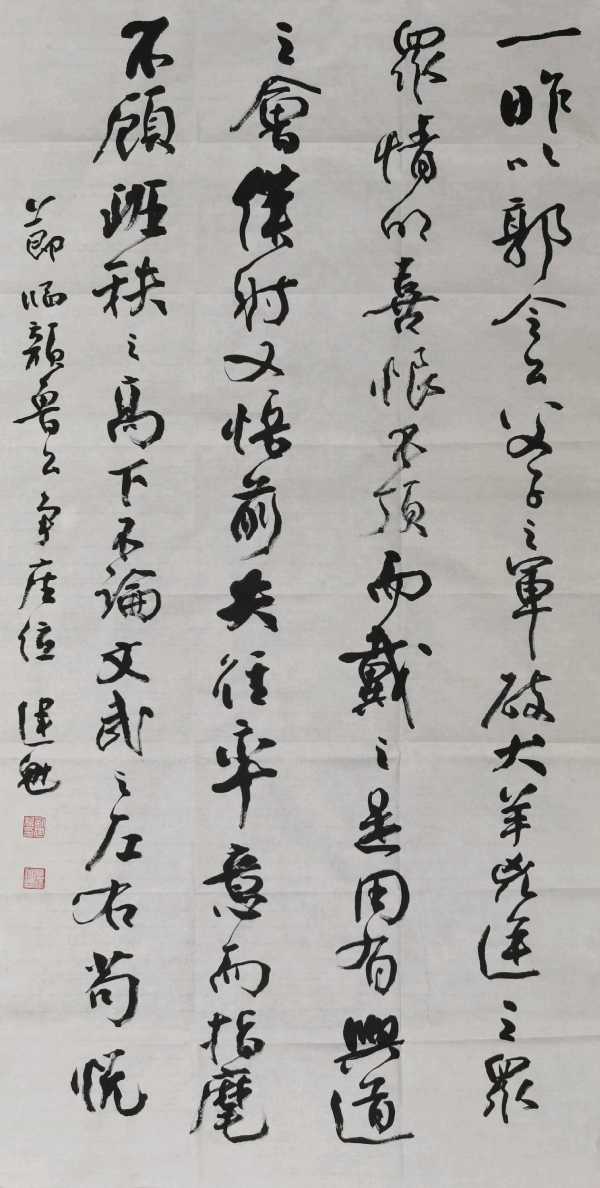 一昨以郭令公父子之軍破犬羊兇逆之眾
眾情欣喜恨不頂而戴之是用有興道
之會僕射又悟前失徑率意而指麾
不顧班秩之高下不論文武之左右苟悅
節臨顏魯公争座位 建